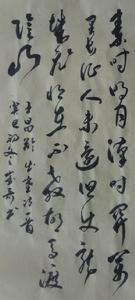 秦时明月汉时关万
里长征人未还但使龙
城飞将在不教胡马渡
阴山
王昌龄出塞诗一首